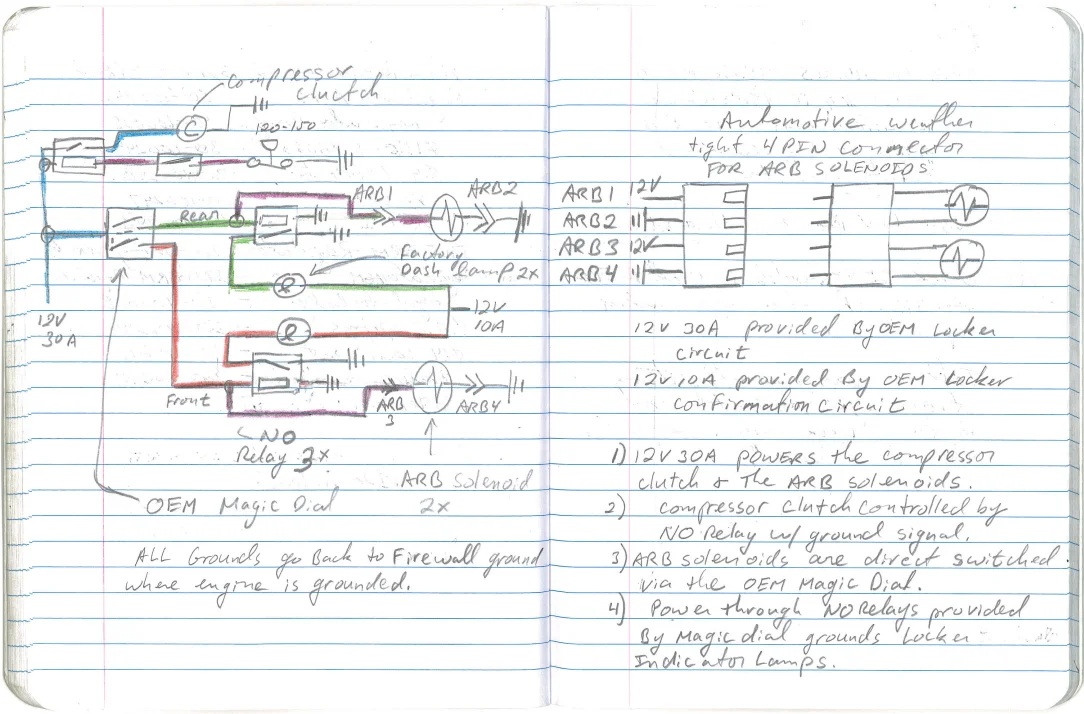 Compressor
Clutch
C
120-150
Rear
ARB1
ARB2
Factory
Dash lamp 2x
12V
10A
12V
30A
Front
ARB
3
ARB4
NO
Relay 3x
ARB Solenoid
2x
OEM Magic Dial
ALL Grounds go Back to Firewall ground
where engine is grounded.
Automotive weather
tight 4 PIN Connector
FOR ARB SOLENOIDS
ARB1 12V
ARB2
ARB3 12V
ARB4
12V 30A provided By OEM Locker
circuit
12V 10A provided By OEM Locker
confirmation circuit
1) 12V 30A POWERS the compressor
clutch & The ARB solenoids.
2) compressor clutch controlled by
NO Relay w/ ground signal.
3) ARB solenoids are direct switched
via the OEM Magic Dial.
4) Power through NO Relays provided
By Magic dial grounds Locker
Indicator Lamps.